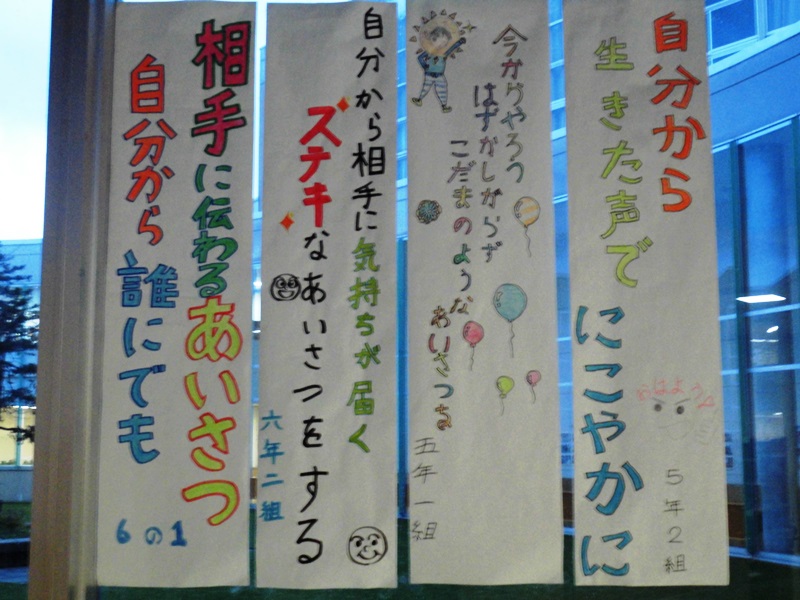 自分から
生きた声で
にこやかに
おはよう
5年2組
今からやろう
はずかしがらず
こだまのような
あいさつを
五年一組
自分から相手に気持ちが届く
ステキなあいさつをする
六年二組
相手に伝わるあいさつ
自分から誰にでも
6の1